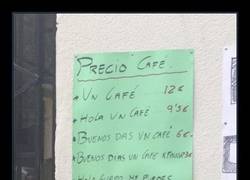 PRECIO CAFÉ.
• UN CAFÉ 12€
• HOLA UN CAFÉ 9'5€
• BUENOS DIAS UN CAFE 6€.
• BUENOS DIAS UN CAFE